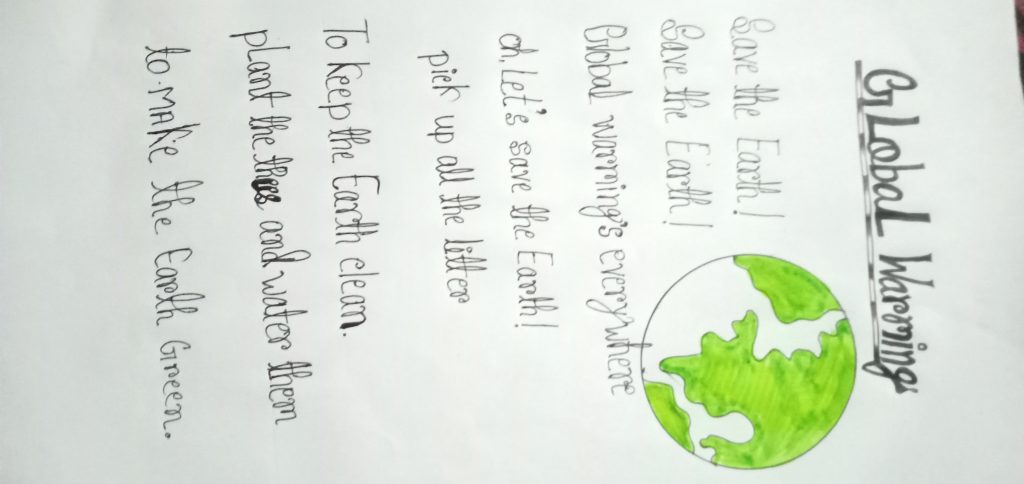 Global Warming
Save the Earth!
Save the Earth!
Global warming's everywhere
oh, Let's save the Earth!
pick up all the litter
To keep the Earth clean.
plant the trees and water them
to make the Earth Green.